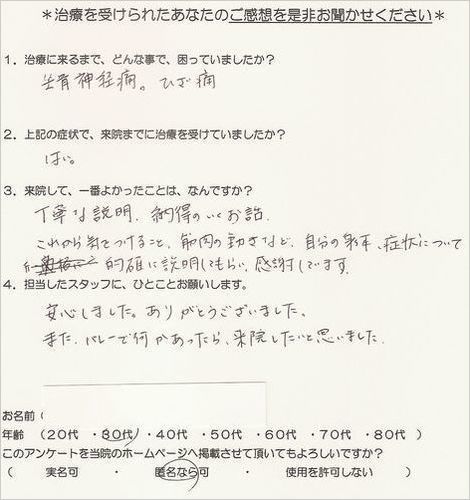 ＊治療を受けられたあなたのご感想を是非お聞かせください＊
1．治療に来るまで、どんな事で、困っていましたか？
坐骨神経痛。ひざ痛
2．上記の症状で、来院までに治療を受けていましたか？
はい。
3．来院して、一番よかったことは、なんですか？
丁寧な説明．納得のいくお話．
これから気をつけること、筋肉の動きなど、自分の 、症状について
的確に説明してもらい、感謝しています．
4．担当したスタッフに、ひとことお願いします。
安心しました。ありがとうございました。
また．バレーで何かあったら、来院したいと思いました．
お名前（
年齢 （20代 ・30代／ ・40代 ・50代 ・60代 ・70代 ・80代 ）
このアンケートを当院のホームページへ掲載させて頂いてもよろしいですか？
（ 実名可 ・ 匿名なら可 ・ 使用を許可しない ）